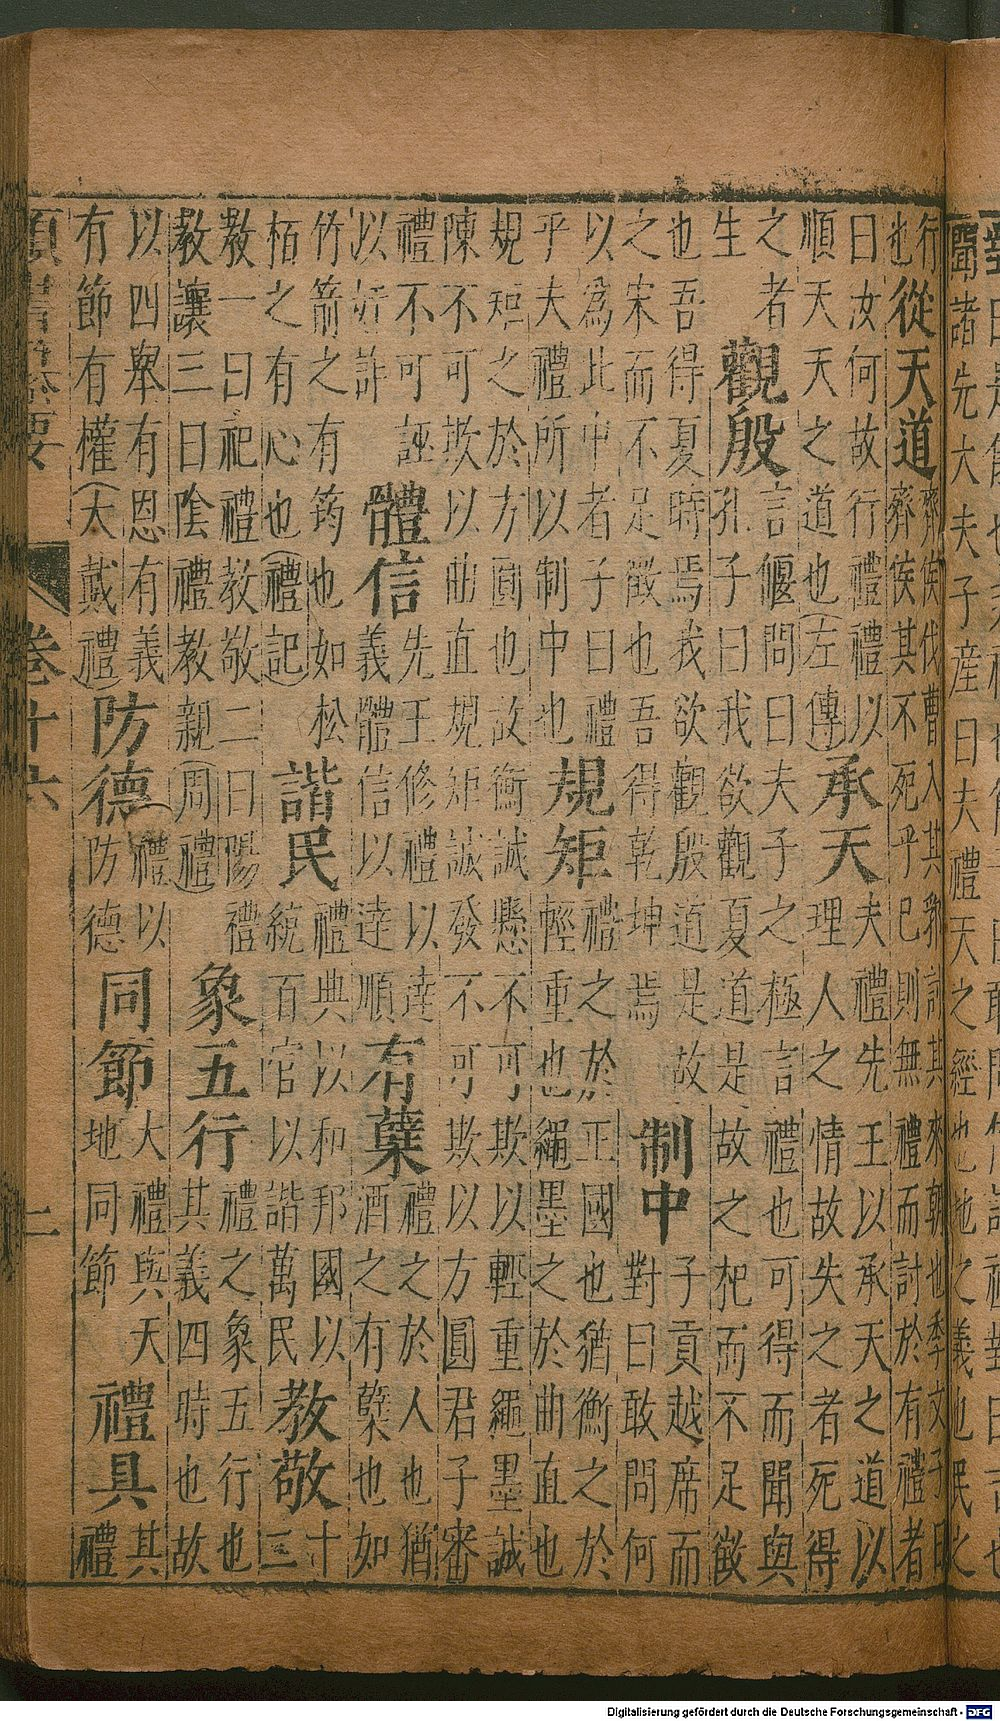 聞諸先大夫子產曰夫禮天之經也地之義也民之
行也 從天道 齊侯伐曹入其郛討其來朝也季文子曰齊侯其不死乎已則無禮而討於有禮者
曰汝何故行禮禮以順天天之道也(左傳) 承天 夫禮先王以承天之道以理人之情故失之者死得
之者生 觀殷 言偃問曰夫子之極言禮也可得而聞與孔子曰我欲觀夏道是故之杞而不足徵
也吾得夏時焉我欲觀殷道是故之宋而不足徵也吾得乾坤焉 制中 子貢越席而對曰敢問何
以為此中者子曰禮乎夫禮所以制中也 規矩 禮之於正國也猶衡之於輕重也繩墨之於曲直也
規矩之於方圓也故衡誠懸不可欺以輕重繩墨誠陳不可欺以曲直規矩誠發不可欺以方圓君子審
禮不可誣以奸詐 體信 先王修禮以達義體信以達順 有蘖 禮之於人也猶酒之有蘖也如
竹箭之有筠也如松栢之有心也(禮記) 諧民 禮典以和邦國以統百官以諧萬民 教敬 十三
教一曰祀禮教敬二曰陽禮教讓三曰陰禮教親(周禮) 象五行 禮之象五行也其義四時也故
以四舉有恩有義有節有權(大戴禮) 防德 禮以防德 同節 大禮與天地同節 禮具 其禮
卷十六
Digitalisierung gefördert durch die Deutsche Forschungsgemeinschaft - DFG